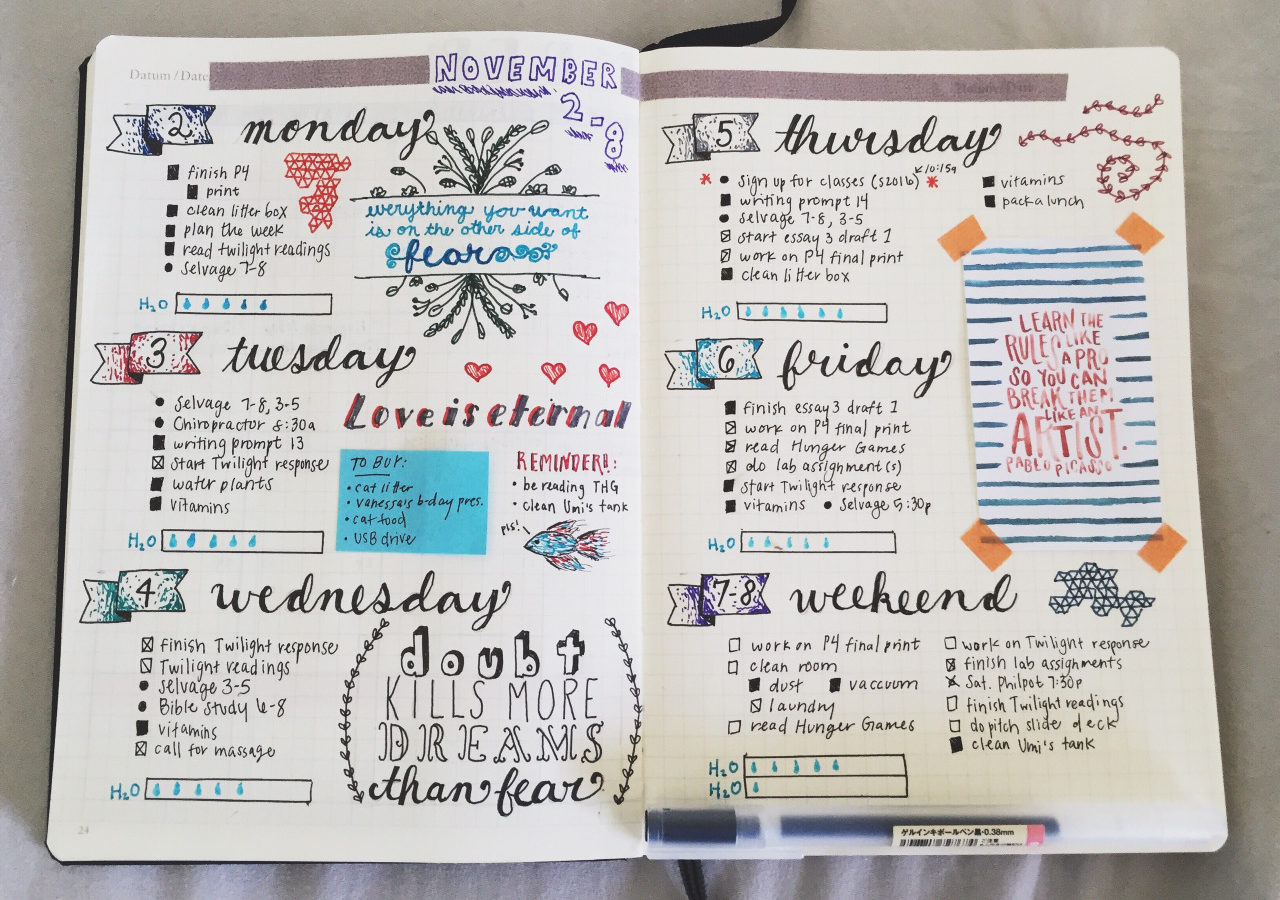 Datum / Date:
NOVEMBER
2-8
2 monday
finish P4
print
clean litter box
plan the week
read twilight readings
Selvage 7-8
H2O
everything you want
is on the other side of
fear
3 tuesday
Selvage 7-8, 3-5
Chiropractor 8:30a
writing prompt 13
start Twilight response
water plants
vitamins
H2O
Love is eternal
TO BUY:
cat litter
vanessa's b-day pres.
cat food
USB drive
REMINDER!!:
be reading THG
clean Umi's tank
pls!
4 wednesday
finish Twilight response
Twilight readings
Selvage 3-5
Bible Study 6-8
vitamins
call for massage
H2O
doubt
KILLS MORE
DREAMS
than fear
24
5 thursday
10:15a
Sign up for classes (S2016)
writing prompt 14
Selvage 7-8, 3-5
start essay 3 draft 1
work on P4 final print
clean litter box
vitamins
pack a lunch
H2O
6 friday
finish essay 3 draft 1
work on P4 final print
read Hunger Games
do lab assignment(s)
start Twilight response
vitamins Selvage 5:30p
H2O
LEARN THE
RULES LIKE
A PRO,
SO YOU CAN
BREAK THEM
LIKE AN
ARTIST.
PABLO PICASSO
7-8 weekeend
work on P4 final print
clean room
dust vaccuum
laundry
read Hunger Games
work on Twilight response
finish lab assignments
Sat. Philpot 7:30p
finish Twilight readings
do pitch slide deck
clean Umi's tank
H2O
H2O
ゲルインキボールペン黒・0.38mm